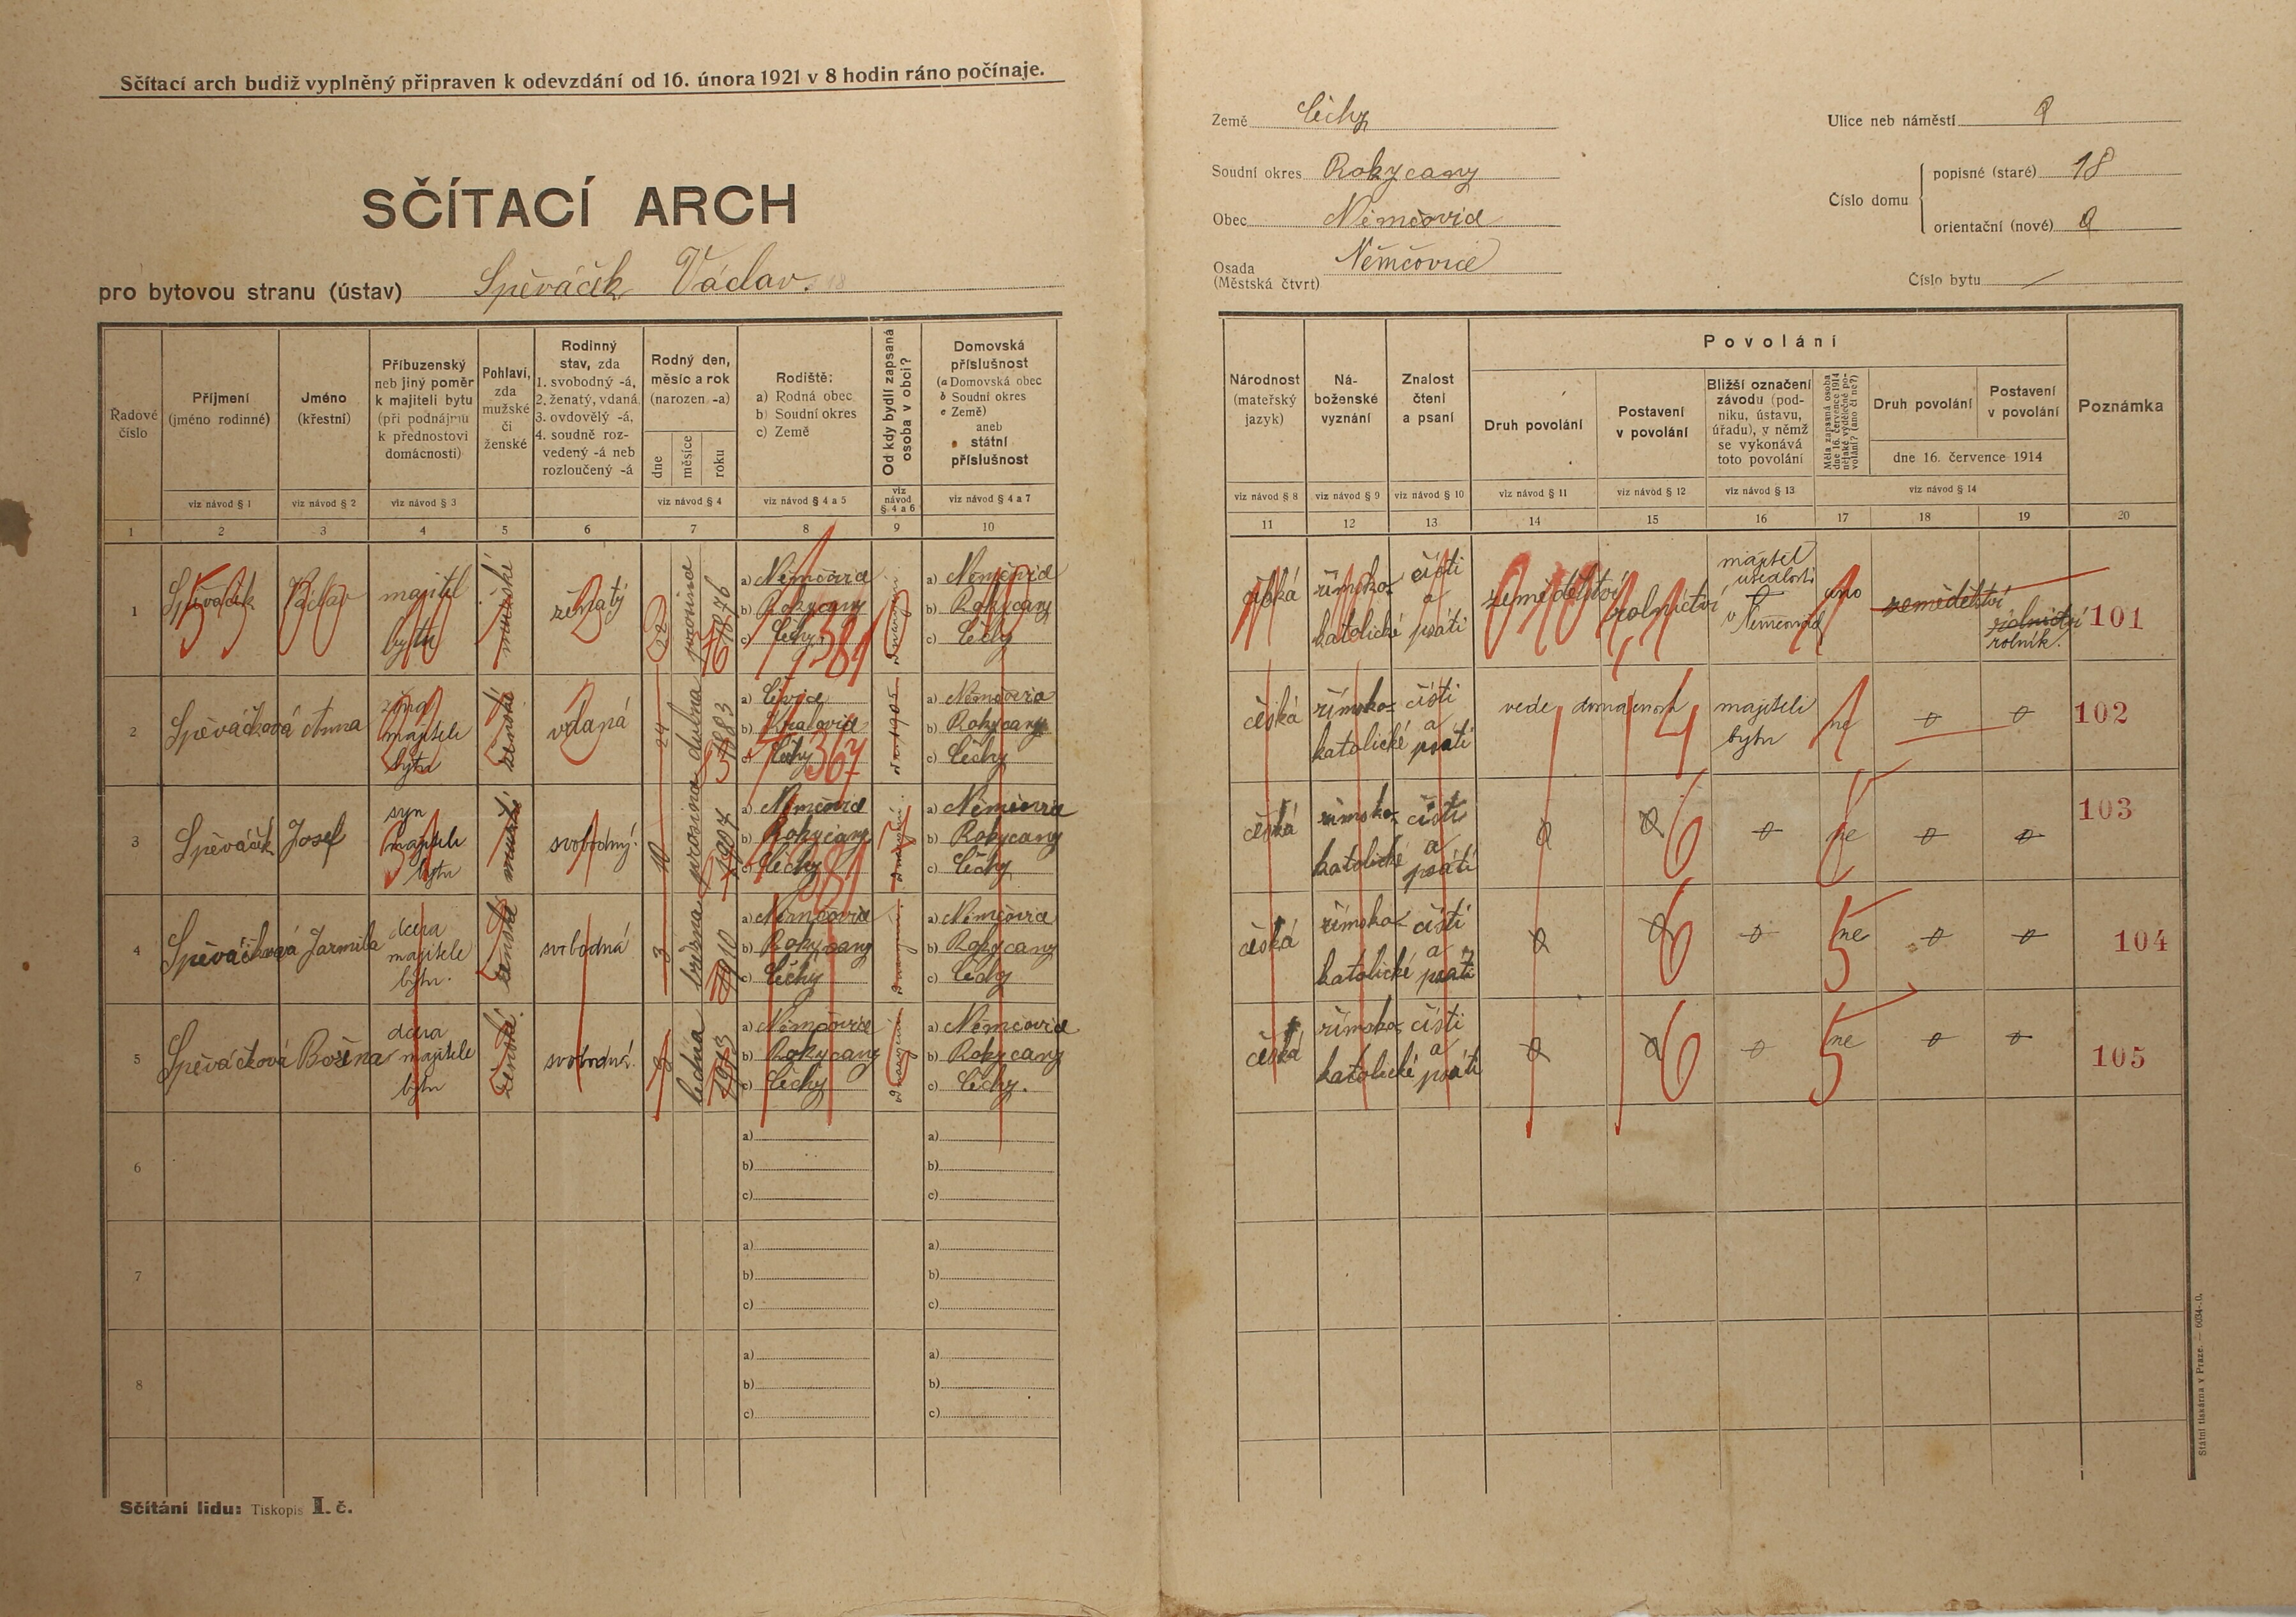 Sčítací arch budiž vyplněný připraven k odevzdání od 16. února 1921 v 8 hodin ráno počínaje.
SČÍTACÍ ARCH
pro bytovou stranu (ústav) Spěváček Václav.
Země Čechy
Soudní okres Rokycany
Obec Němčovice
Osada Němčovice
(Městská čtvrt)
Ulice neb náměstí
Číslo domu
popisné (staré) 18
orientační (nové)
Číslo bytu
Řadové číslo
Příjmení (jméno rodinné)
Jméno (křestní)
Příbuzenský neb jiný poměr k majiteli bytu (při podnájmu k přednostovi domácnosti)
Pohlaví, zda mužské či ženské
Rodinný stav, zda 1. svobodný -á, 2. ženatý, vdaná, 3. ovdovělý -á, 4. soudně rozvedený -á neb rozloučený -á
Rodný den, měsíc a rok (narozen -a)
dne
měsíce
roku
Rodiště:
a) Rodná obec
b) Soudní okres
c) Země
Od kdy bydlí zapsaná osoba v obci?
Domovská příslušnost
(a Domovská obec
b Soudní okres
c Země)
aneb
státní příslušnost
Národnost (mateřský jazyk)
Náboženské vyznání
Znalost čtení a psaní
Povolání
Druh povolání
Postavení v povolání
Bližší označení závodu (podniku, ústavu, úřadu), v němž se vykonává toto povolání
Měla zapsaná osoba dne 16. července 1914 nějaké výdělečné povolání? (ano či ne?)
Druh povolání
Postavení v povolání
dne 16. července 1914
Poznámka
viz návod § 1 viz návod § 2 viz návod § 3 viz návod § 4 viz návod § 4 a 5 viz návod § 4 a 6 viz návod § 4 a 7
viz návod § 8 viz návod § 9 viz návod § 10 viz návod § 11 viz návod § 12 viz návod § 13 viz návod § 14
1 2 3 4 5 6 7 8 9 10
11 12 13 14 15 16 17 18 19 20
1 Spěváček Václav majitel bytu mužské ženatý 22 1876
a) Němčovice b) Rokycany c) Čechy
a) Němčovice b) Rokycany c) Čechy
česká římsko-katolické čísti a psáti zemědělství rolnictví majitel usedlosti v Němčovicích ano zemědělství rolnictví rolník. 101
2 Spěváčková Anna žena majitele bytu ženské vdaná 24 dubna 1883
b) Kralovice c) Čechy
1905
a) Němčovice b) Rokycany c) Čechy
česká římsko-katolické čísti a psáti vede domácnost majiteli bytu ne 102
3 Spěváček Josef syn majitele bytu mužské svobodný 10 prosince 1907
a) Němčovice b) Rokycany c) Čechy
a) Němčovice b) Rokycany c) Čechy
česká římsko-katolické čísti a psáti ne 103
4 Spěváčková Jarmila dcera majitele bytu. ženské svobodná 3 března 1910
a) Němčovice b) Rokycany c) Čechy
od narození
a) Němčovice b) Rokycany c) Čechy
česká římsko-katolické čísti a psáti ne 104
5 Spěváčková Božena dcera majitele bytu ženské svobodná. ledna 1913
a) Němčovice b) Rokycany c) Čechy
od narození
a) Němčovice b) Rokycany c) Čechy.
česká římsko-katolické čísti a psáti ne 105
6 a) b) c) a) b) c)
7 a) b) c) a) b) c)
8 a) b) c) a) b) c)
Sčítání lidu: Tiskopis I. č.
Státní tiskárna v Praze. — 6034-20.